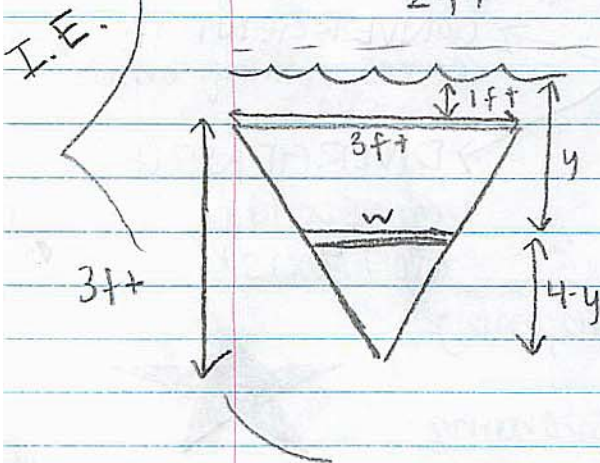 I.E.
1ft
3ft
y
w
3ft
4-y